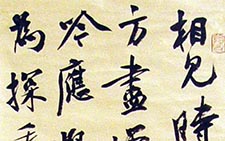 相見時
方盡
吟應
為探